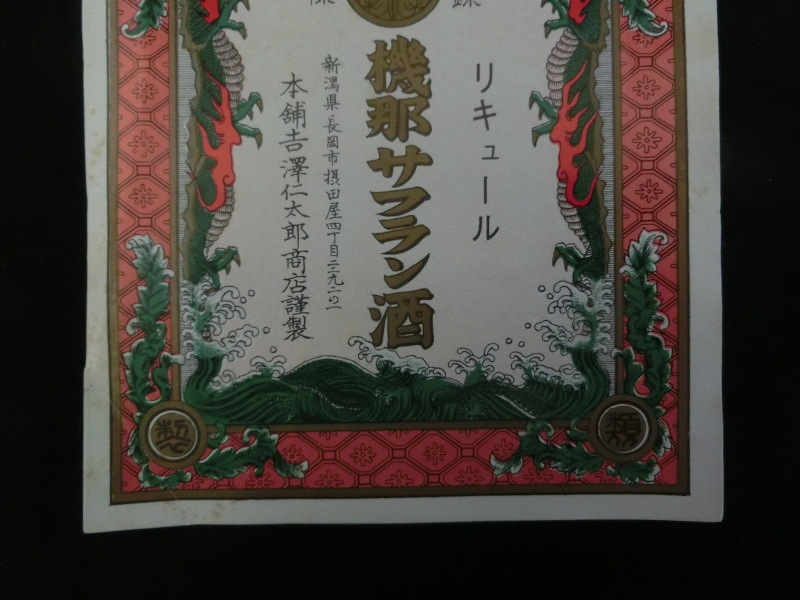 リキュール
機那サフラン酒
新潟県長岡市摂田屋四丁目二九二の一
本舗吉澤仁太郎商店謹製
類
製